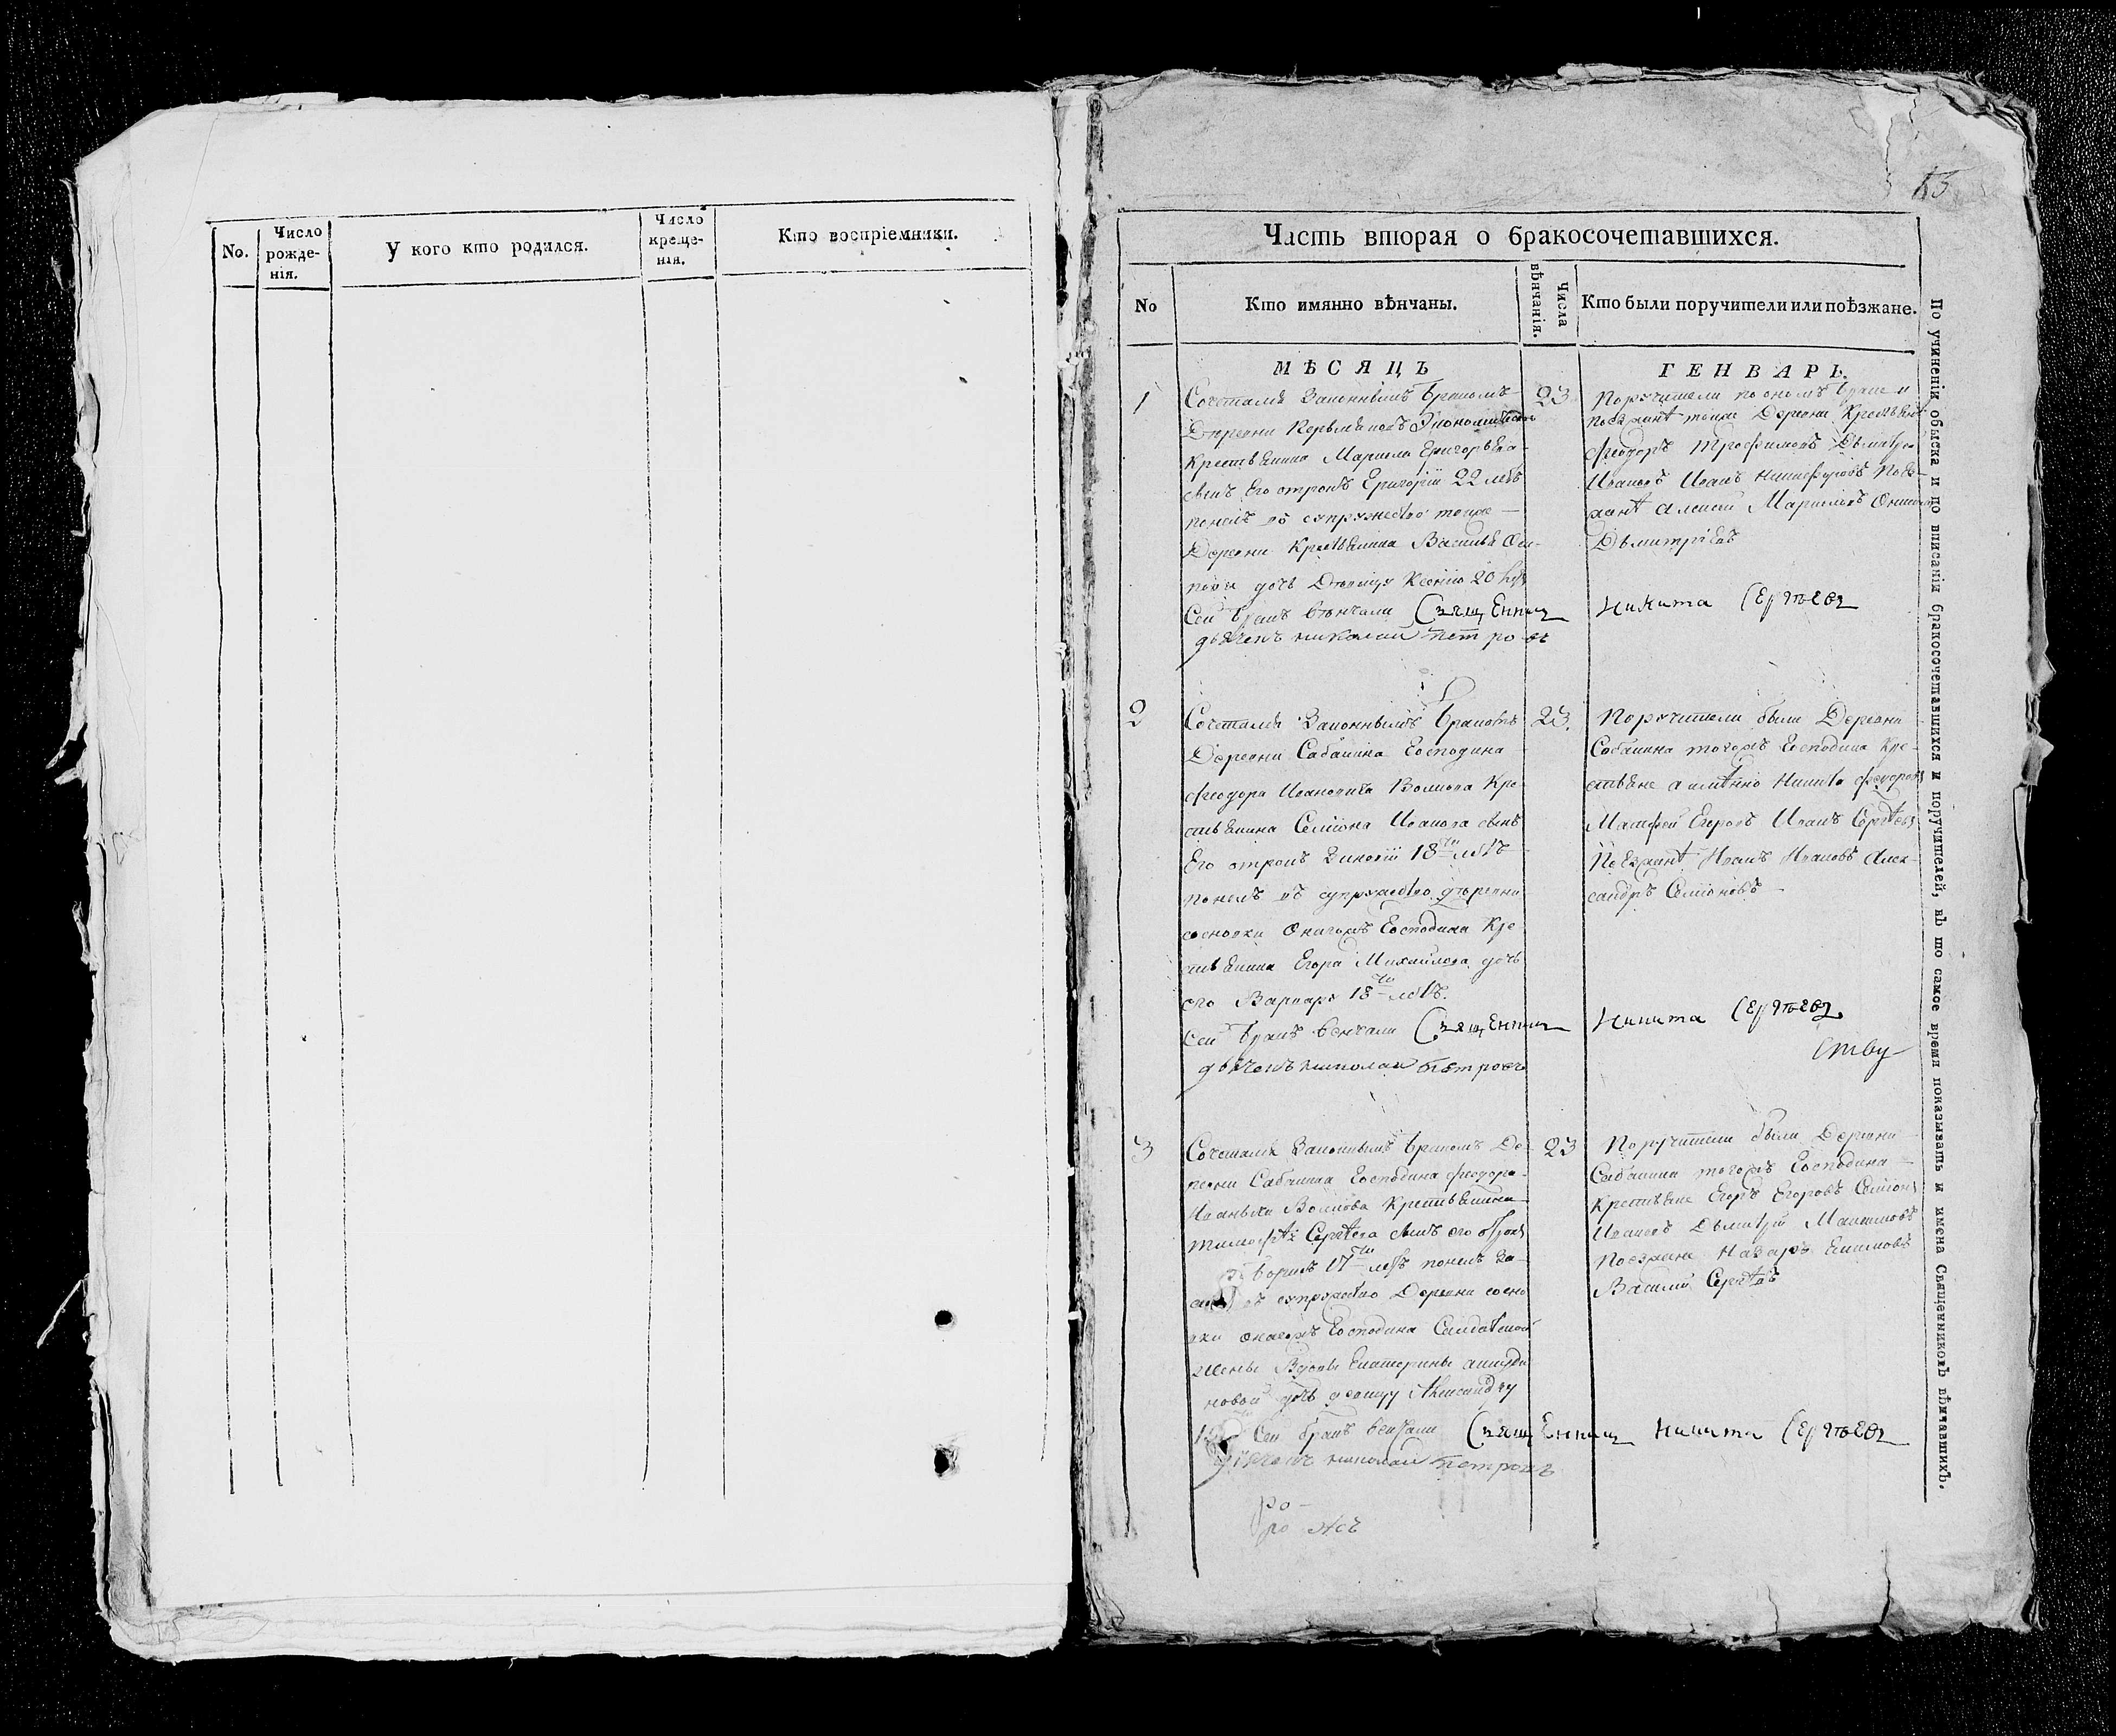 No.
Число рожде-нія.
У кого кто родился.
Число креще-нія.
Кто воспріемники.
Часть вторая о бракосочетавшихся.
No
Кто имянно вѣнчаны.
Числа вѣнчанія.
Кто были поручители или поѣзжане.
МѢСЯЦЪ
ГЕНВАРЬ.
1
Сочетался Законнымъ бракомъ
Деревни
Григорьева
сынъ Его отрокъ Григорій 22 летъ
понелъ въ супружество тоже
Деревни Крестьянина Василья Оси-
пова дочь Девицу Ксенію 20 летъ
Сей бракъ венчали Священникъ
дьячекъ николай петровъ
23
Поручители по ономъ браке и
тоже Деревни
феодоръ трофимовъ Дьмитрей
Ивановъ Иванъ Никифоровъ Поез-
жанѣ
Дьмитріевъ
Никита Сергѣевъ
2
Сочетался Законнымъ бракомъ
Деревни Сабанина Господина
феодора Ивановича Волкова Кре
стьянина Семіона Иванова сынъ
Его отрокъ Зиновій 18 летъ
понелъ въ супружество деревни
сосновки Оногожъ Господина Кре
стьянина Егора Михайлова дочь
его Варвару 18 летъ.
Сей бракъ венчали Священникъ
дьячокъ николай петровъ
23.
Поручители были Деревни
Сабанина тогожъ Господина Кре-
стьяне а имѣнно Никита феодоровъ
Матфей Егоровъ Иванъ Сергѣевъ
Поезжанѣ Иванъ Ивановъ Алек-
сандръ Семіоновъ
Никита Сергѣевъ
3
Сочетался Законнымъ бракомъ Де-
ревни Сабанина Господина феодора
Волкова Крестьянина
Сергѣева сынъ его отрокъ
17 летъ понелъ
въ супружество Деревни сосно
вки онагожъ Господина Салдатской
жены Вдовы Екатерины
дочь девицу Александру
Сей бракъ венчали Священникъ
николай петровъ
23
Поручители были Деревни
Сабанина тогожъ Господина
Крестьяне Егоръ Егоровъ Семіонъ
Ивановъ Дьмитрій
Поезжане Назаръ
Василій Сергѣевъ
Никита Сергѣевъ
По учиненіи обыска и по вписаніи бракосочетавшихся и поручителей, въ то самое время показывать и имена Священниковъ вѣнчавшихъ.